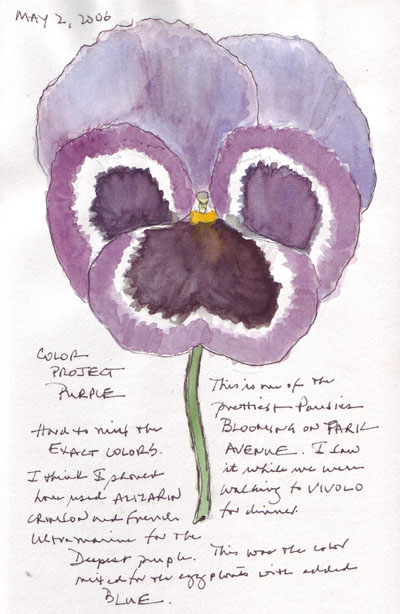 MAY 2, 2006
COLOR
PROJECT
PURPLE
Hard to mix the
EXACT COLORS.
I think I should
have used ALIZARIN
CRIMSON and French
Ultramarine for the
Deepest purple. This was the color
mixed for the eggplants with added
BLUE.
This is one of the
prettiest Pansies
BLOOMING ON PARK
AVENUE. I saw
it while we were
walking to VIVOLO
for dinner.